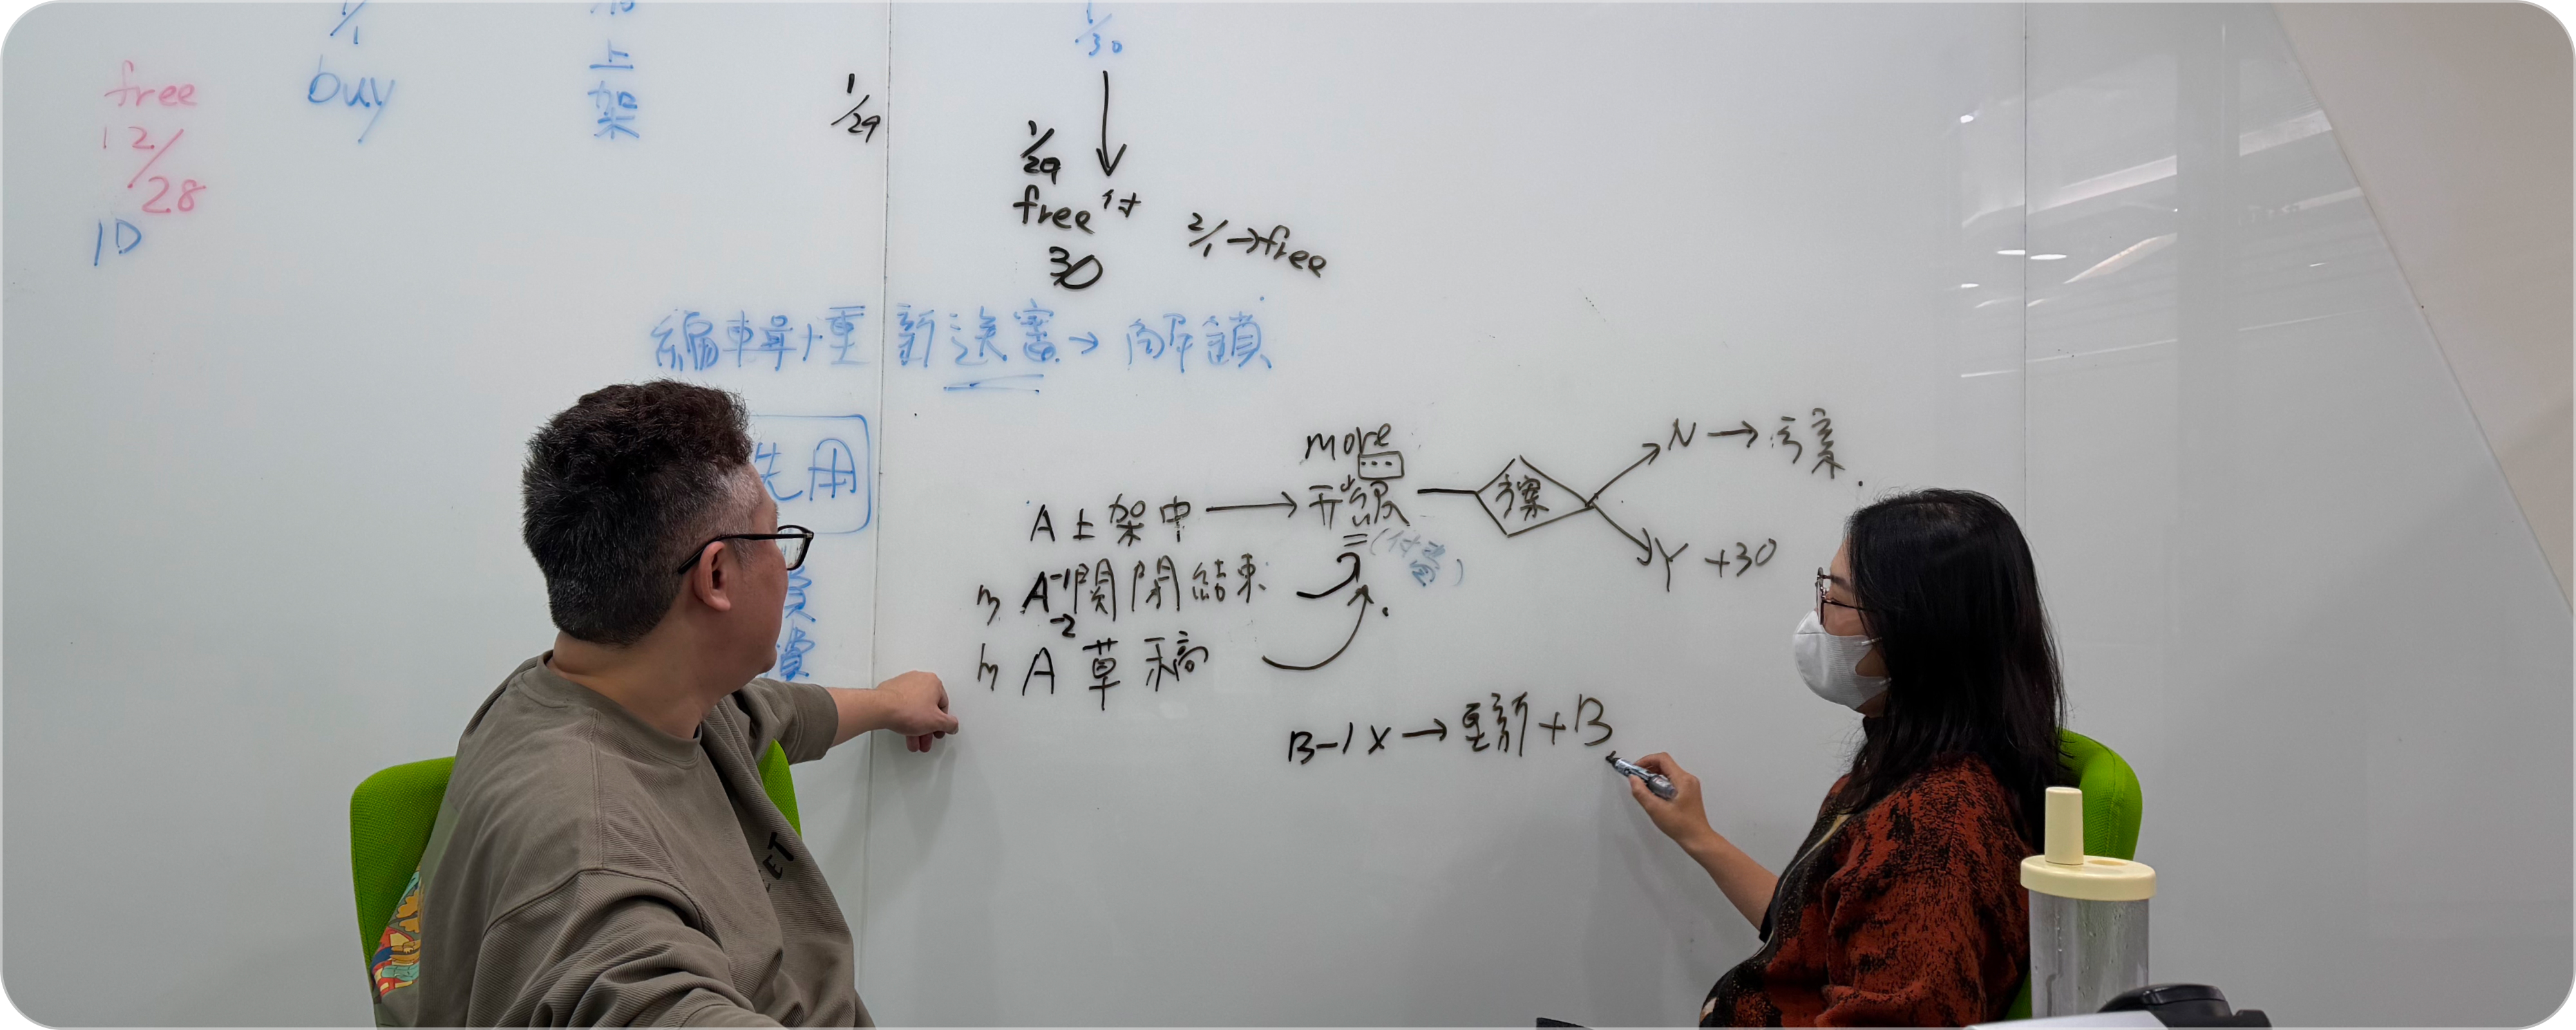 1/1
buy
free
12/28
1D
上架
1/29
1/30
1/29
free 付
30
2/1→free
編輯+重新送審→解鎖
先用
費
more
...
A上架中
(付費)
N
Y +30
A -1 關閉結束
-2
A 草稿
B-1 X → 重新+B
EET